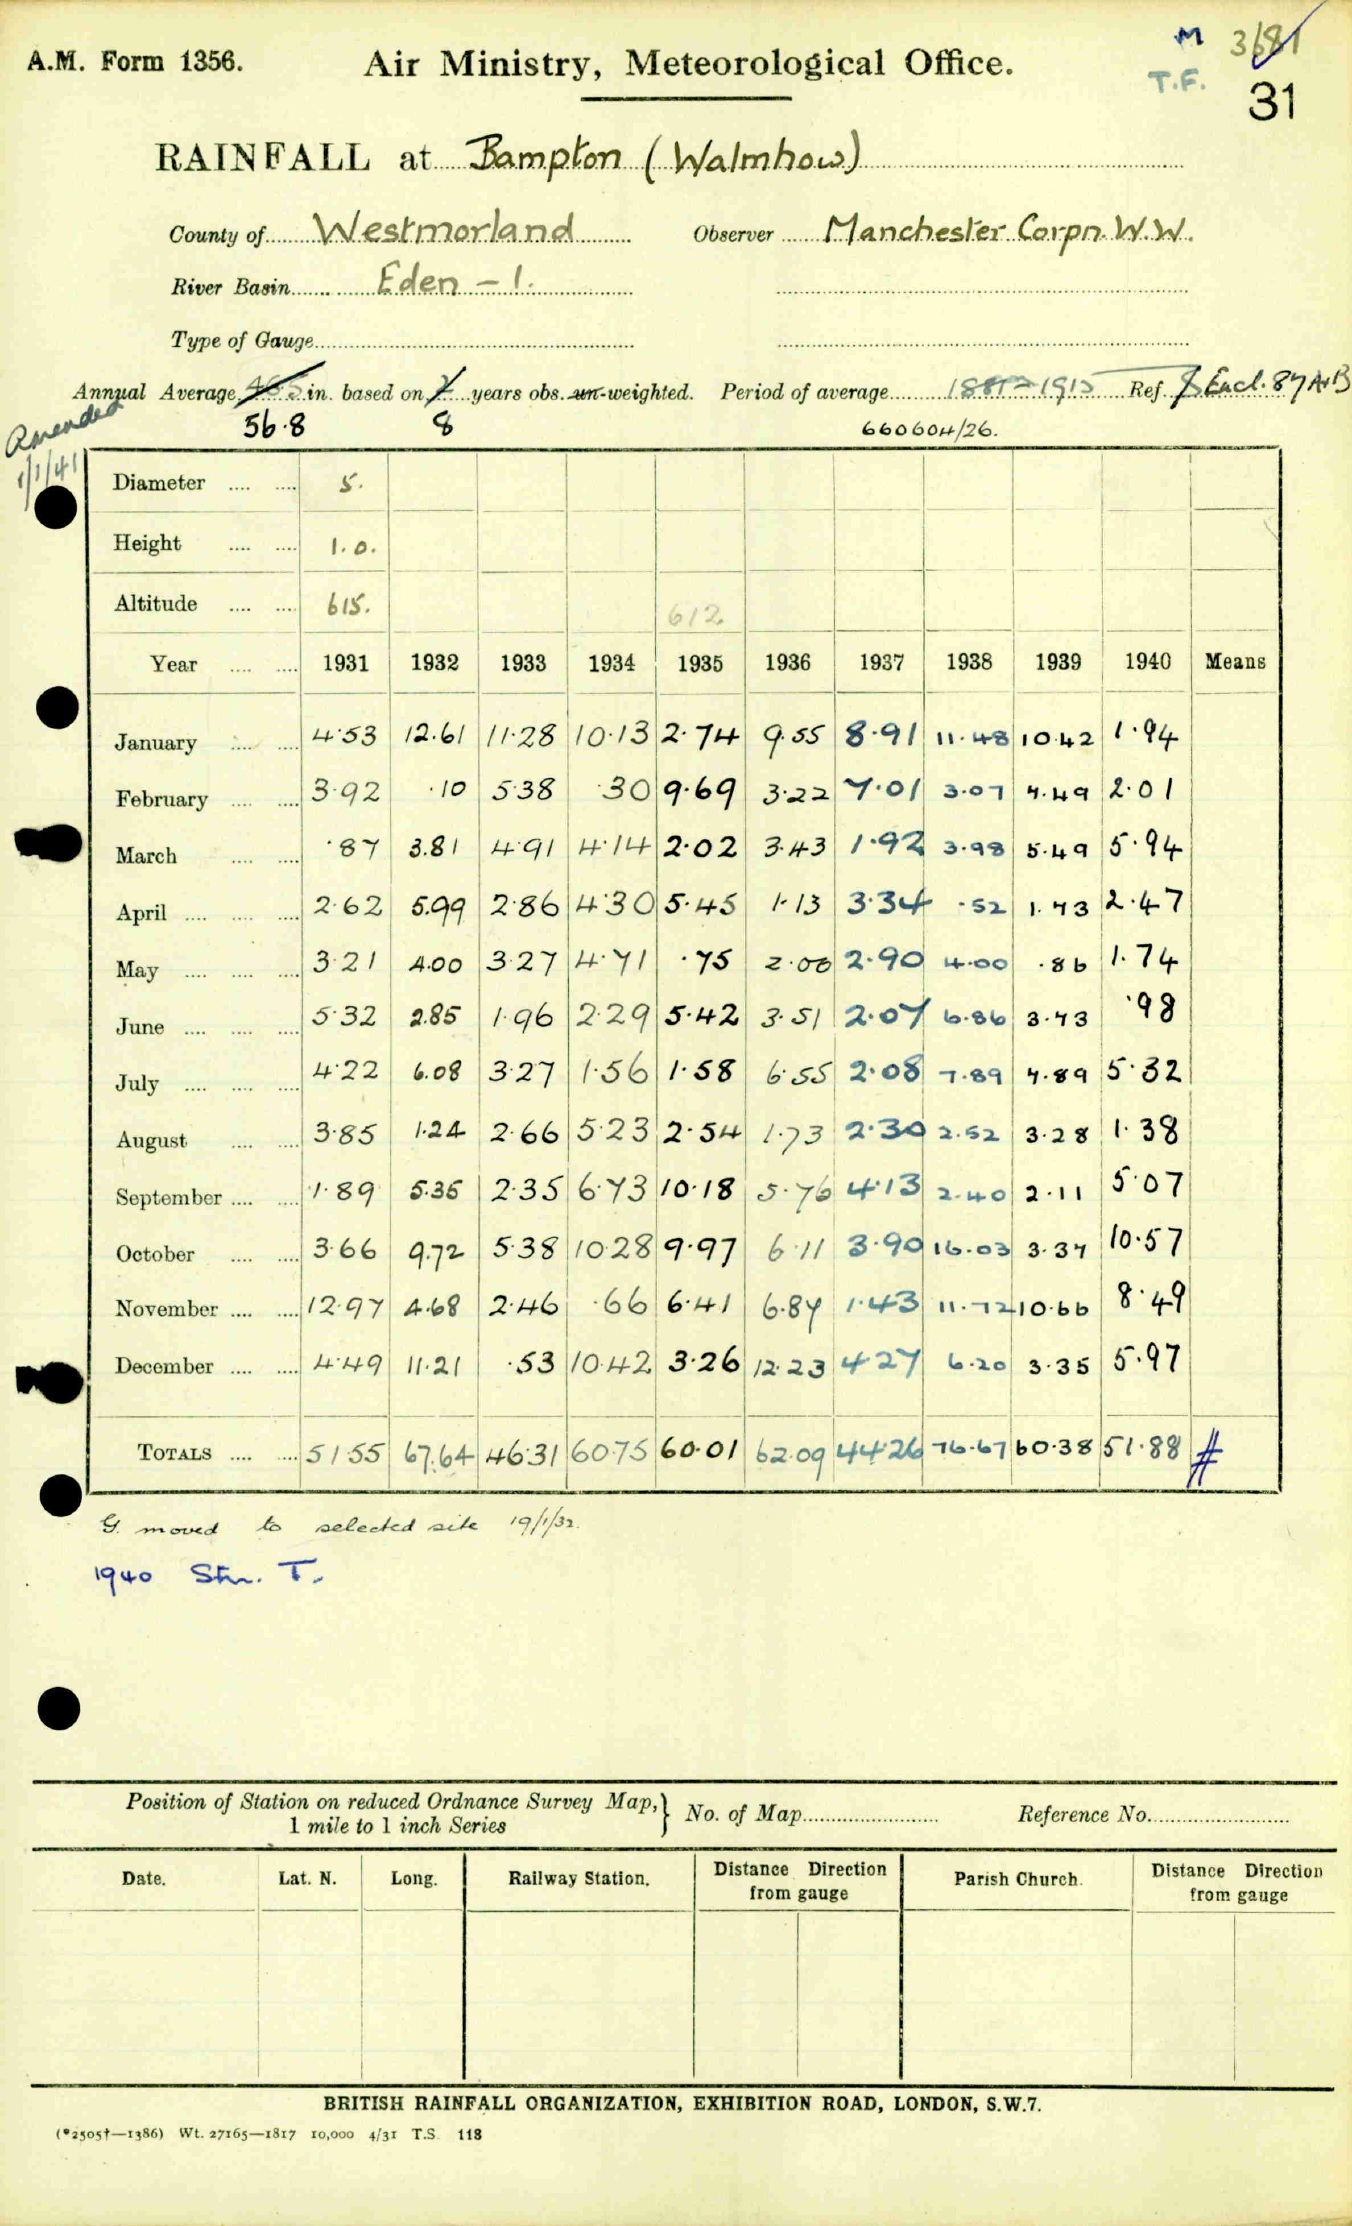 A.M. Form 1356.
Air Ministry, Meteorological Office.
M
T.F.
31
RAINFALL at Bampton (Walmhow)
County of Westmorland Observer Manchester Corpn. W.W.
River Basin Eden - 1.
Type of Gauge
Annual Average in. based on years obs. un-weighted. Period of average 1881-1915 Ref. Encl. 87 A+B
56.8 8 660604/26.
Amended
1/1/41
Diameter 5.
Height 1.0.
Altitude 615. 612
Year 1931 1932 1933 1934 1935 1936 1937 1938 1939 1940 Means
January 4.53 12.61 11.28 10.13 2.74 9.55 8.91 11.48 10.42 1.94
February 3.92 .10 5.38 .30 9.69 3.22 7.01 3.07 7.49 2.01
March .87 3.81 4.91 4.14 2.02 3.43 1.92 3.98 5.49 5.94
April 2.62 5.99 2.86 4.30 5.45 1.13 3.34 .52 1.73 2.47
May 3.21 4.00 3.27 4.71 .75 2.00 2.90 4.00 .86 1.74
June 5.32 2.85 1.96 2.29 5.42 3.51 2.07 6.86 3.73 .98
July 4.22 6.08 3.27 1.56 1.58 6.55 2.08 7.89 7.89 5.32
August 3.85 1.24 2.66 5.23 2.54 1.73 2.30 2.52 3.28 1.38
September 1.89 5.35 2.35 6.73 10.18 5.76 4.13 2.40 2.11 5.07
October 3.66 9.72 5.38 10.28 9.97 6.11 3.90 16.03 3.37 10.57
November 12.97 4.68 2.46 .66 6.41 6.87 1.43 11.72 10.66 8.49
December 4.49 11.21 .53 10.42 3.26 12.23 4.27 6.20 3.35 5.97
TOTALS 51.55 67.64 46.31 60.75 60.01 62.09 44.26 76.67 60.38 51.88 #
G. moved to selected site 19/1/32.
1940 Stn. T.
Position of Station on reduced Ordnance Survey Map, 1 mile to 1 inch Series } No. of Map Reference No.
Date. Lat. N. Long. Railway Station. Distance Direction from gauge Parish Church. Distance Direction from gauge
BRITISH RAINFALL ORGANIZATION, EXHIBITION ROAD, LONDON, S.W.7.
(*2505†—1386) Wt. 27165—1817 10,000 4/31 T.S. 118